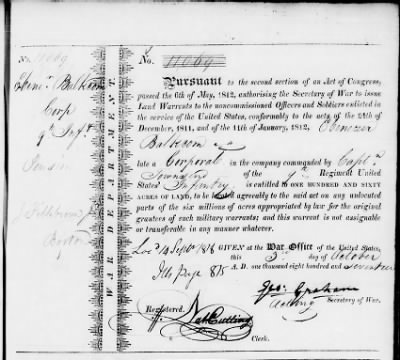 No. 11069
No. 11069
Pursuant to the second section of an Act of Congress,
passed the 6th of May, 1812, authorising the Secretary of War to issue
Land Warrants to the noncommissioned Officers and Soldiers enlisted in
the service of the United States, conformably to the acts of the 24th of
December, 1811, and of the 11th of January, 1812, Ebenezer
Balkcom
late a Corporal in the company commanded by Capt.
of the 9th Regiment United
States' Infantry is entitled to ONE HUNDRED AND SIXTY
ACRES OF LAND, to be located agreeably to the said act on any unlocated
parts of the six millions of acres appropriated by law for the original
grantees of such military warrants; and this warrant is not assignable
or transferable in any manner whatever.
Loc'd 14 Sept 1818 GIVEN at the War Office of the United States,
this 3rd day of October
A. D. one thousand eight hundred and seventeen
Ills Page 875
Geo: Graham
Acting Secretary of War.
Registered.
Nat Cutting
Clerk.
WAR DEPARTMENT
Corp
9th Inf
Boston